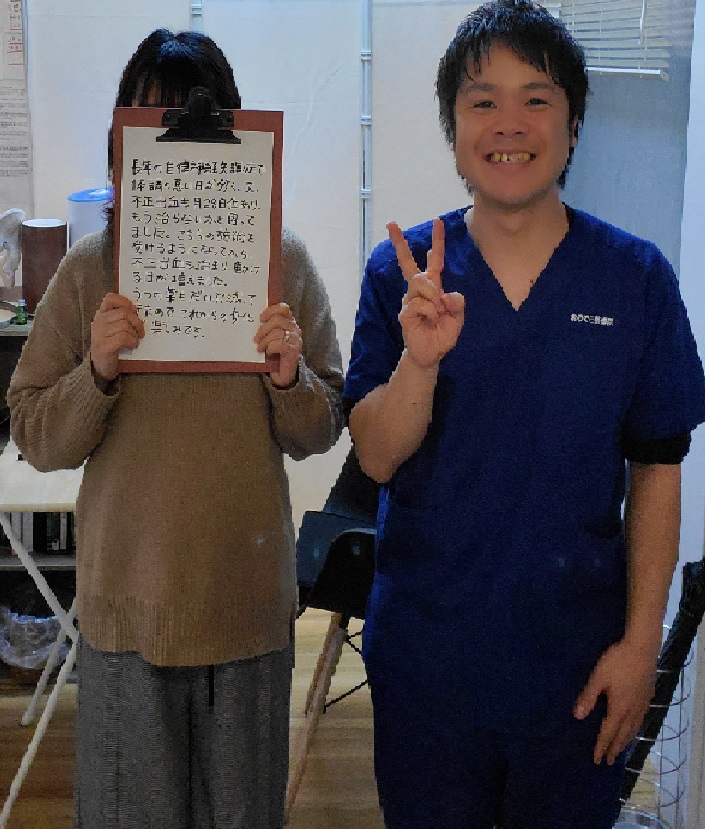 長年の自律神経失調症で
体調の悪い日が多く、又、
不正出血も月28日位あり、
もう治らないかと困って
ました。こちらの施術を
受けるようになってから
不正出血も治まり動け
る日が増えました。
うつの薬もだいぶ減って
これからの
楽しみです。